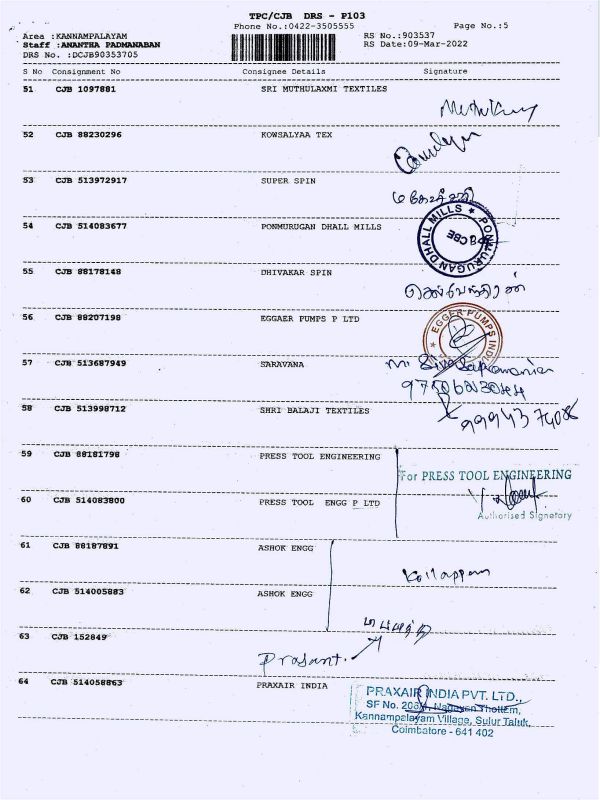 TPC/CJB DRS - P103
Phone No.:0422-3505555
Page No.:5
Area :KANNAMPALAYAM
Staff :ANANTHA PADMANABAN
DRS No. :DCJB90353705
RS No.:903537
RS Date:09-Mar-2022
S No Consignment No Consignee Details Signature
51 CJB 1097881 SRI MUTHULAXMI TEXTILES
52 CJB 88230296 KOWSALYAA TEX
53 CJB 513972917 SUPER SPIN
மகேஸ்வரி
54 CJB 514083677 PONMURUGAN DHALL MILLS
PONMURUGAN DHALL MILLS ★
CBE
55 CJB 88178148 DHIVAKAR SPIN
56 CJB 88207198 EGGAER PUMPS P LTD
EGGER PUMPS INDI
57 CJB 513687949 SARAVANA
58 CJB 513998712 SHRI BALAJI TEXTILES
99943 74028
59 CJB 88181798 PRESS TOOL ENGINEERING
For PRESS TOOL ENGINEERING
60 CJB 514083800 PRESS TOOL ENGG P LTD
Authorised Signetory
61 CJB 88187891 ASHOK ENGG
Kollappan
62 CJB 514005883 ASHOK ENGG
63 CJB 152849
Prasant.
64 CJB 514058863 PRAXAIR INDIA
PRAXAIR INDIA PVT. LTD.,
SF No. 208/1, Nagayan Thottam,
Kannampalayam Village, Sulur Taluk,
Coimbatore - 641 402